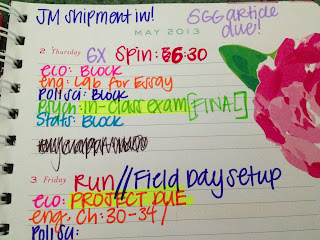 JM shipment in!
SGG article due!
MAY 2013
2 Thursday GX Spin: 6:30
eco: Block
eng: Lab for Essay
Polisci: Block
Psych: in-class exam [FINAL]
Stats: Block
3 Friday Run // Field Day setup
eco: PROJECT DUE
eng. Ch: 30-34
Polisci: